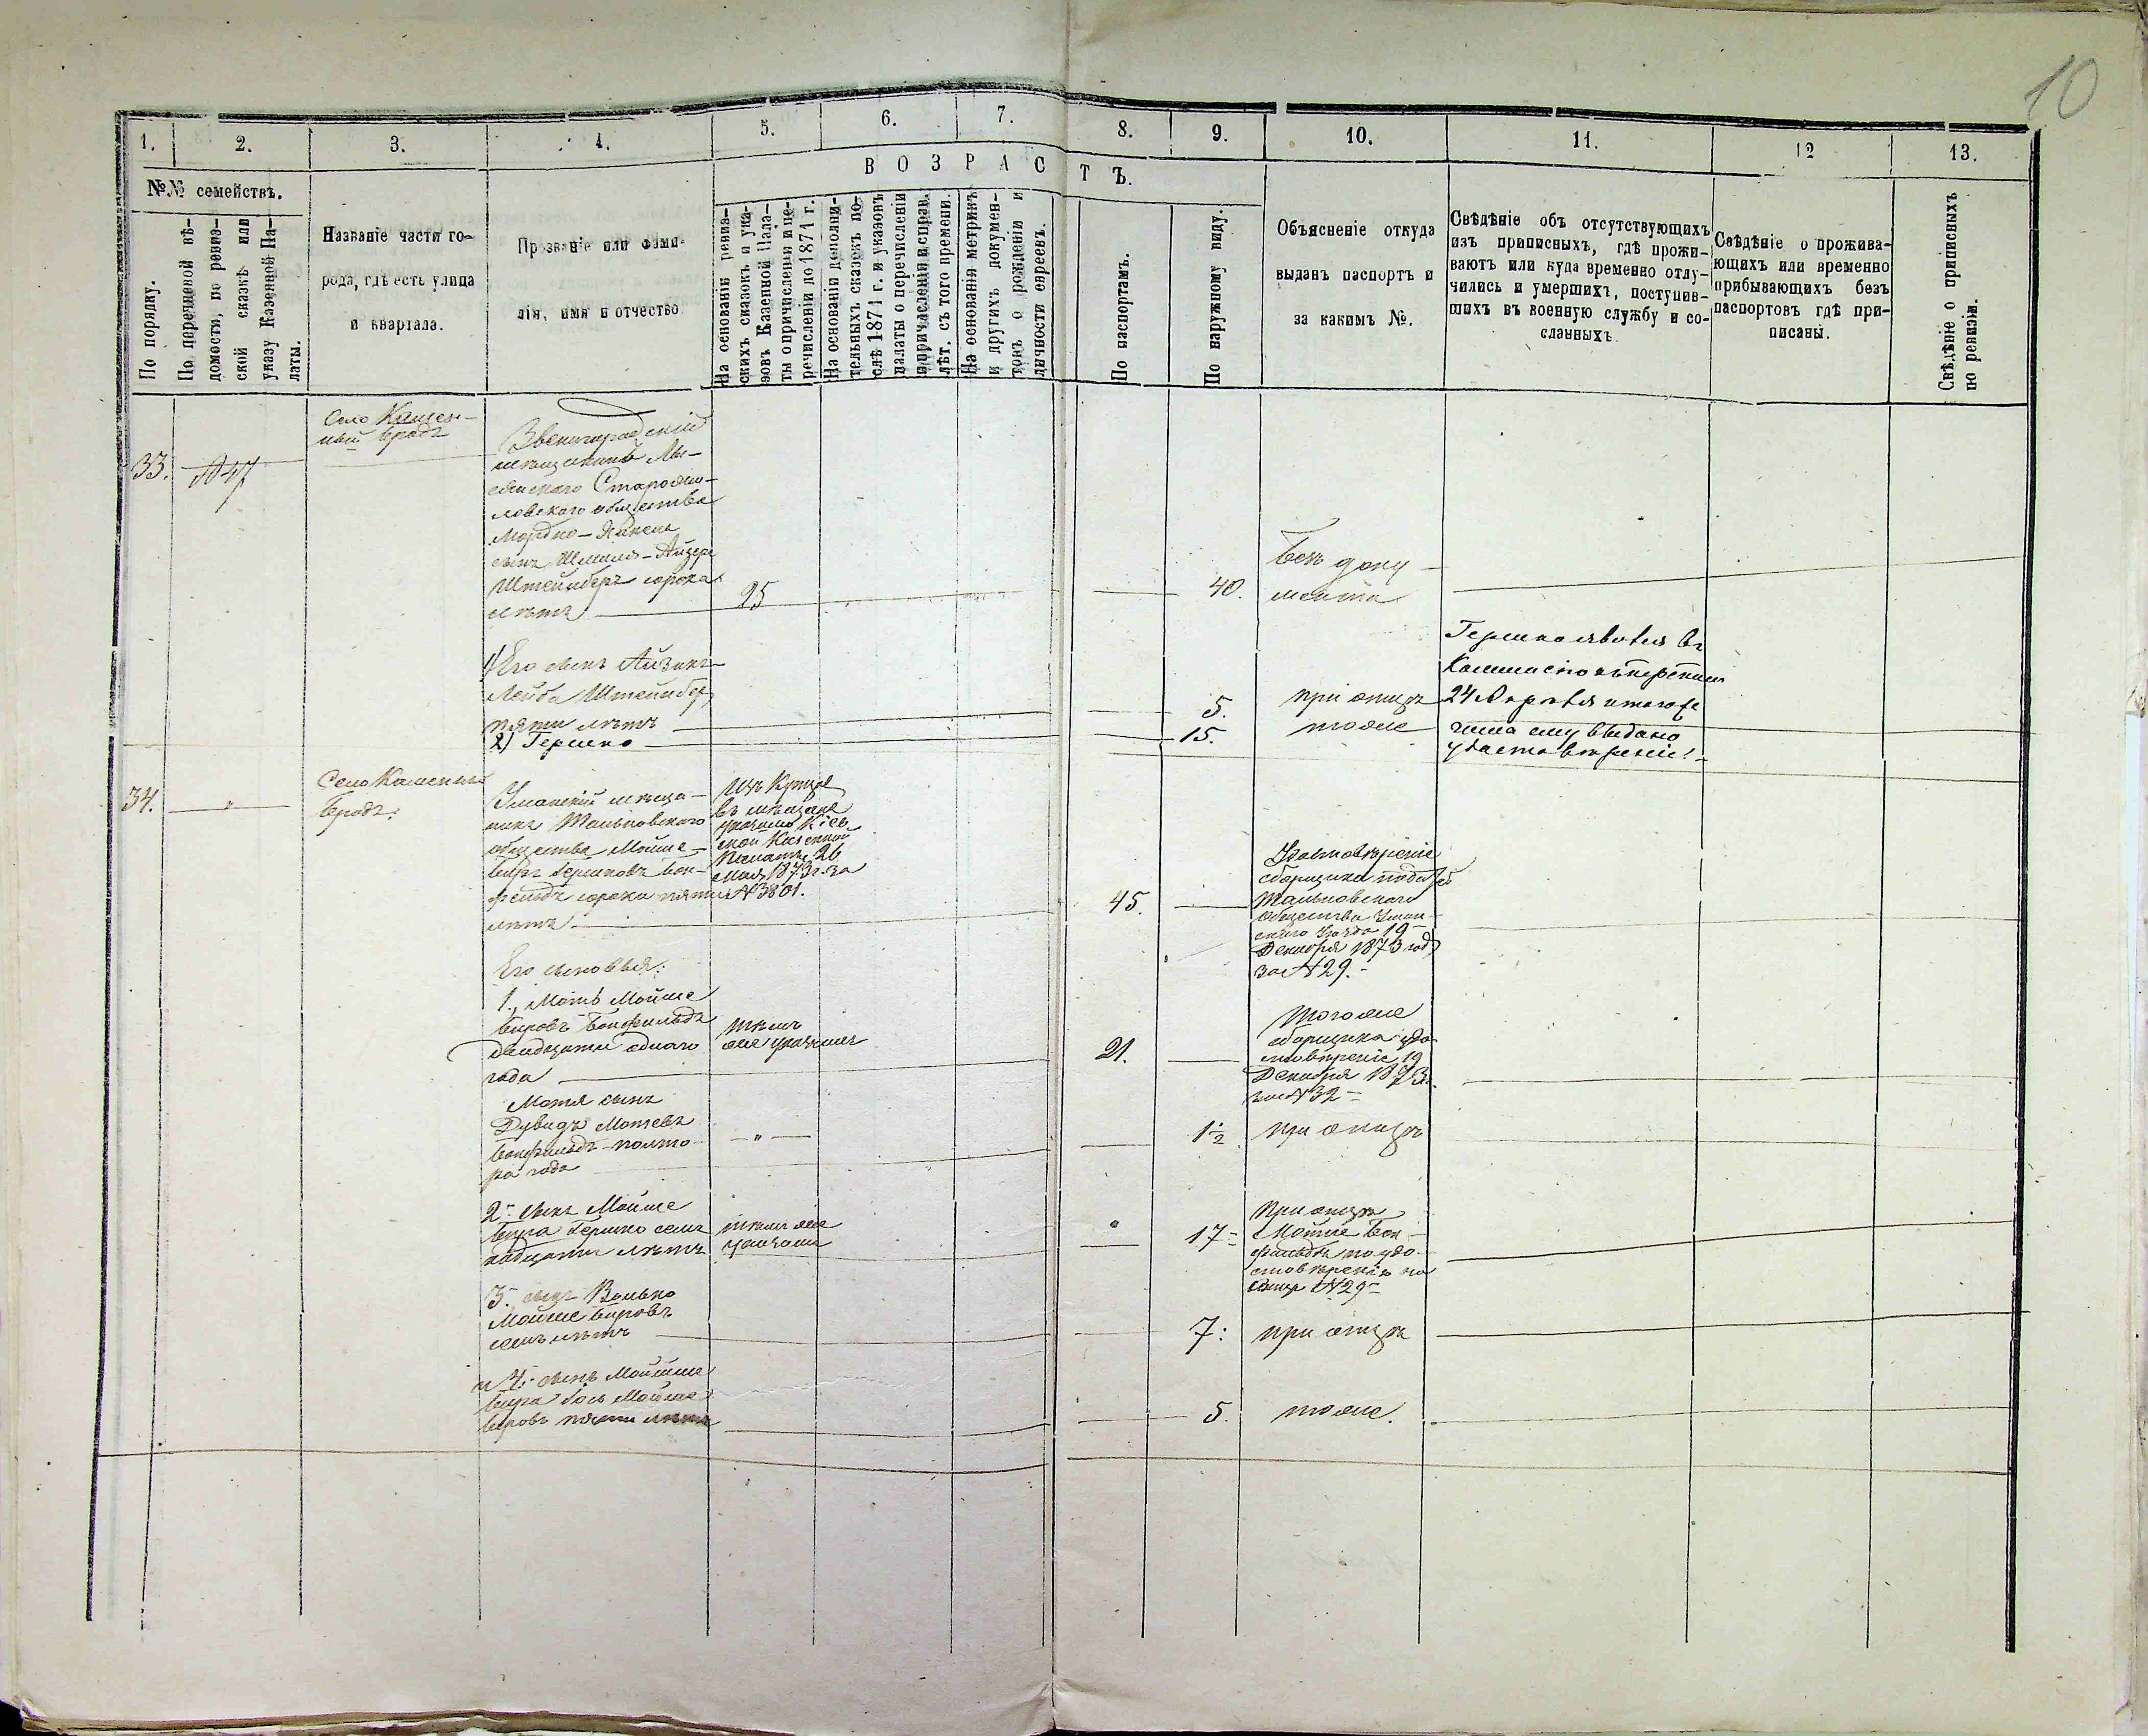 10
1. 2. 3. 4. 5. 6. 7. 8. 9. 10. 11. 12 13.
№№ семействъ.
ВОЗРАСТЪ.
По порядку.
По перешевой вѣ-
домости, по ревиз-
ской сказкѣ или
указу Казенной Па-
латы.
Названіе части го-
рода, гдѣ есть улица
и квартала.
Прозваніе или фами-
лія, имя и отчество
На основаніи ревиз-
скихъ сказокъ и ука-
зовъ Казенной Пала-
ты о причисленіи и пе-
речисленіи до 1871 г.
На основаніи дополни-
тельныхъ сказокъ по-
слѣ 1871 г. и указовъ
палаты о перечисленіи
и причисленіи исправ.
лѣт. съ того времени.
На основаніи метрикъ
и другихъ докумен-
товъ о рожденіи и
личности евреевъ.
По паспортамъ.
По наружному виду.
Объясненіе откуда
выданъ паспортъ и
за какимъ №.
Свѣдѣніе объ отсутствующихъ
изъ приписныхъ, гдѣ прожи-
ваютъ или куда временно отлу-
чились и умершихъ, поступив-
шихъ въ военную службу и со-
сланныхъ.
Свѣдѣніе о прожива-
ющихъ или временно
прибывающихъ безъ
паспортовъ гдѣ при-
писаны.
Свѣдѣніе о приписныхъ
по ревизіи.
33.
Село Камен-
ный бродъ
Звенигородскій
мѣщанинъ Лы-
сянскаго
общества
Мордко-
сынъ Шмиля-
Штейнберъ сорока
лѣтъ
25
40.
Безъ доку-
мента
1) Его сынъ Айзикъ-
Лейба Штейнбер
пяти лѣтъ
5.
при отцѣ
2) Гершко
15.
тоже
Гершко явился въ
24
числа ему выдано
34.
"
Село Каменный
бродъ.
Уманскій мѣща-
нинъ Тальновскаго
общества Мойше-
беръ Гершковъ Бон-
фельдъ сорока пяти
лѣтъ.
Изъ Купцовъ
въ мѣщане
указомъ Кіев
ской Казенной
Палаты 26
Мая 1873 г. за
№ 3801.
45.
Удостовѣреніе
сборщика податей
Тальновскаго
общества Уман-
скаго Уѣзда 19
Декабря 1873 года
за № 29.-
Его сыновья:
1., Моть Мойше
беровъ Бонфильдъ
двадцати одного
года
тѣмъ
же указомъ
21.
Того же
сборщика удо-
стовѣреніе 19
Декабря 1873 г.
за № 32-
Мотя сынъ
Дувидъ Мотевъ
Бонфильдъ полто-
ра года
- " -
1½
при отцѣ
2-. сынъ Мойше
бера Гершко сем-
надцати лѣтъ
тѣмъ же
указомъ
17-
при отцѣ
Мойше Бон-
фильдѣ по удо-
стовѣренію за
№ 29-
3-. сынъ Волько
Мойше беровъ
семь лѣтъ
7:
при отцѣ
и 4. сынъ Мойше
бера Іось Мойше
беровъ пяти лѣтъ
5.
тоже.